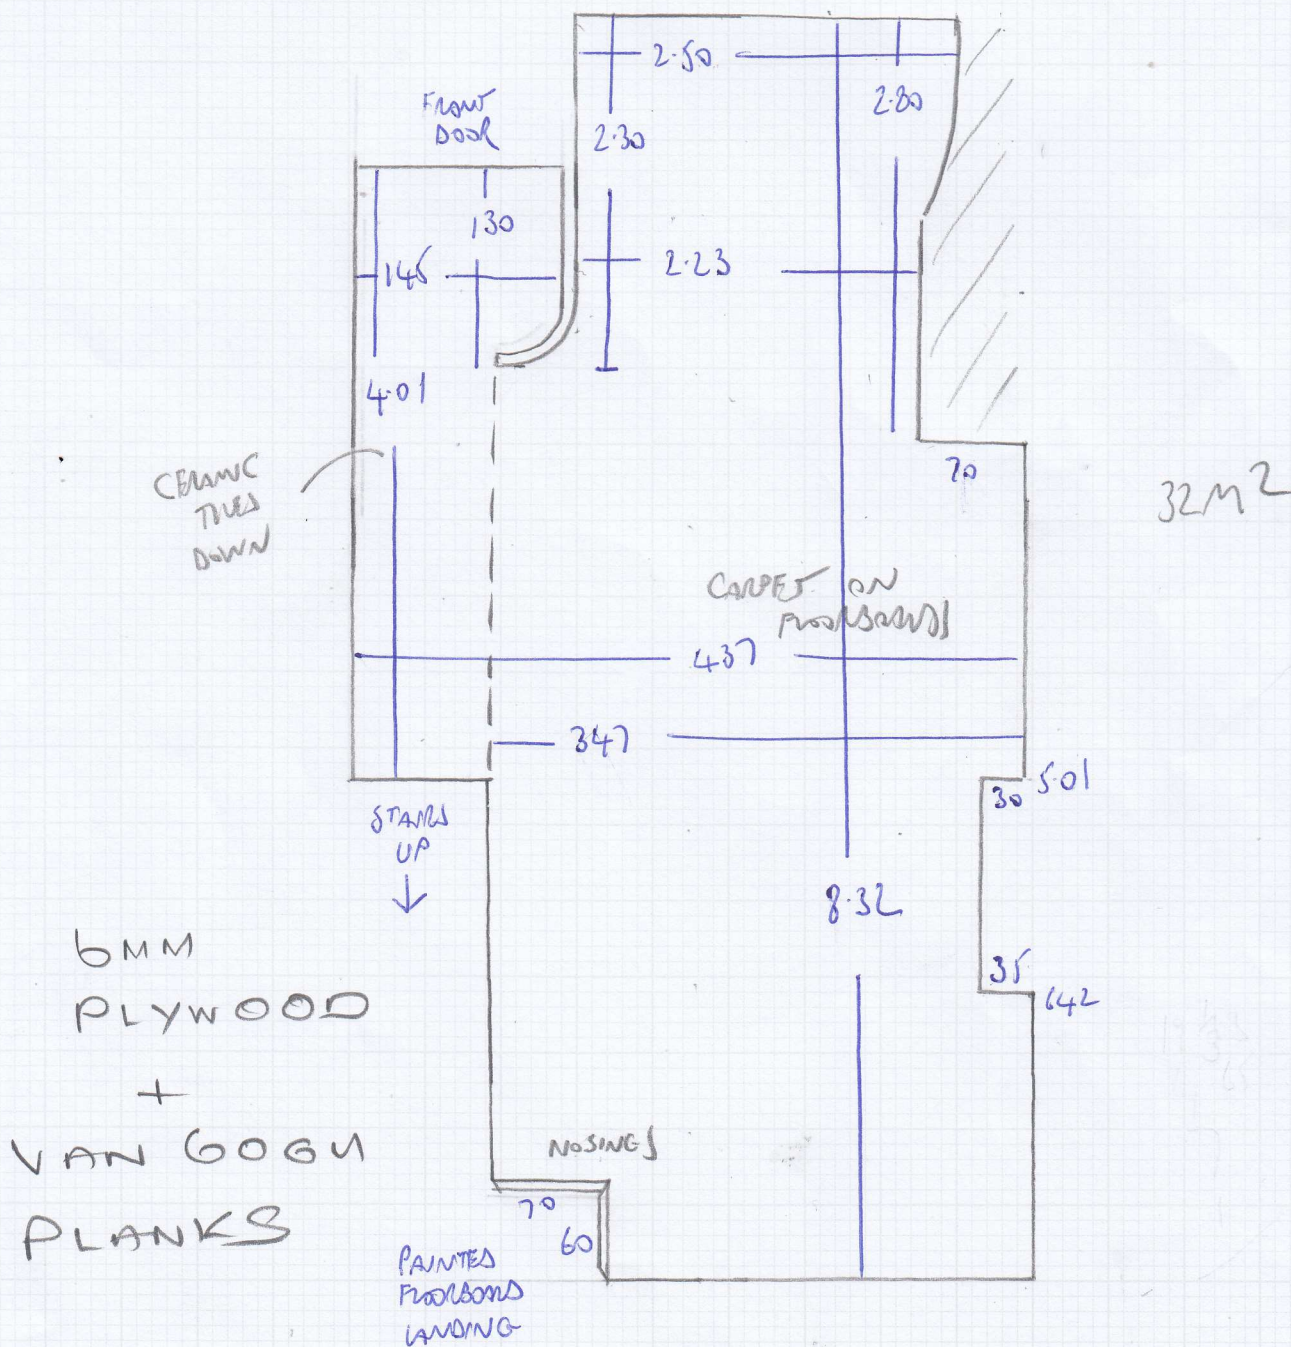 2.50
FRONT
DOOR
2.80
2.30
130
145
2.23
4.01
CERAMIC
TILES
DOWN
70
32M2
CARPET ON
FLOORBOARDS
437
347
30
5.01
STAIRS
UP
8.32
6MM
PLYWOOD
+
VAN GOGH
PLANKS
35
642
NOSINGS
70
60
PAINTED
FLOORBOARDS
LANDING